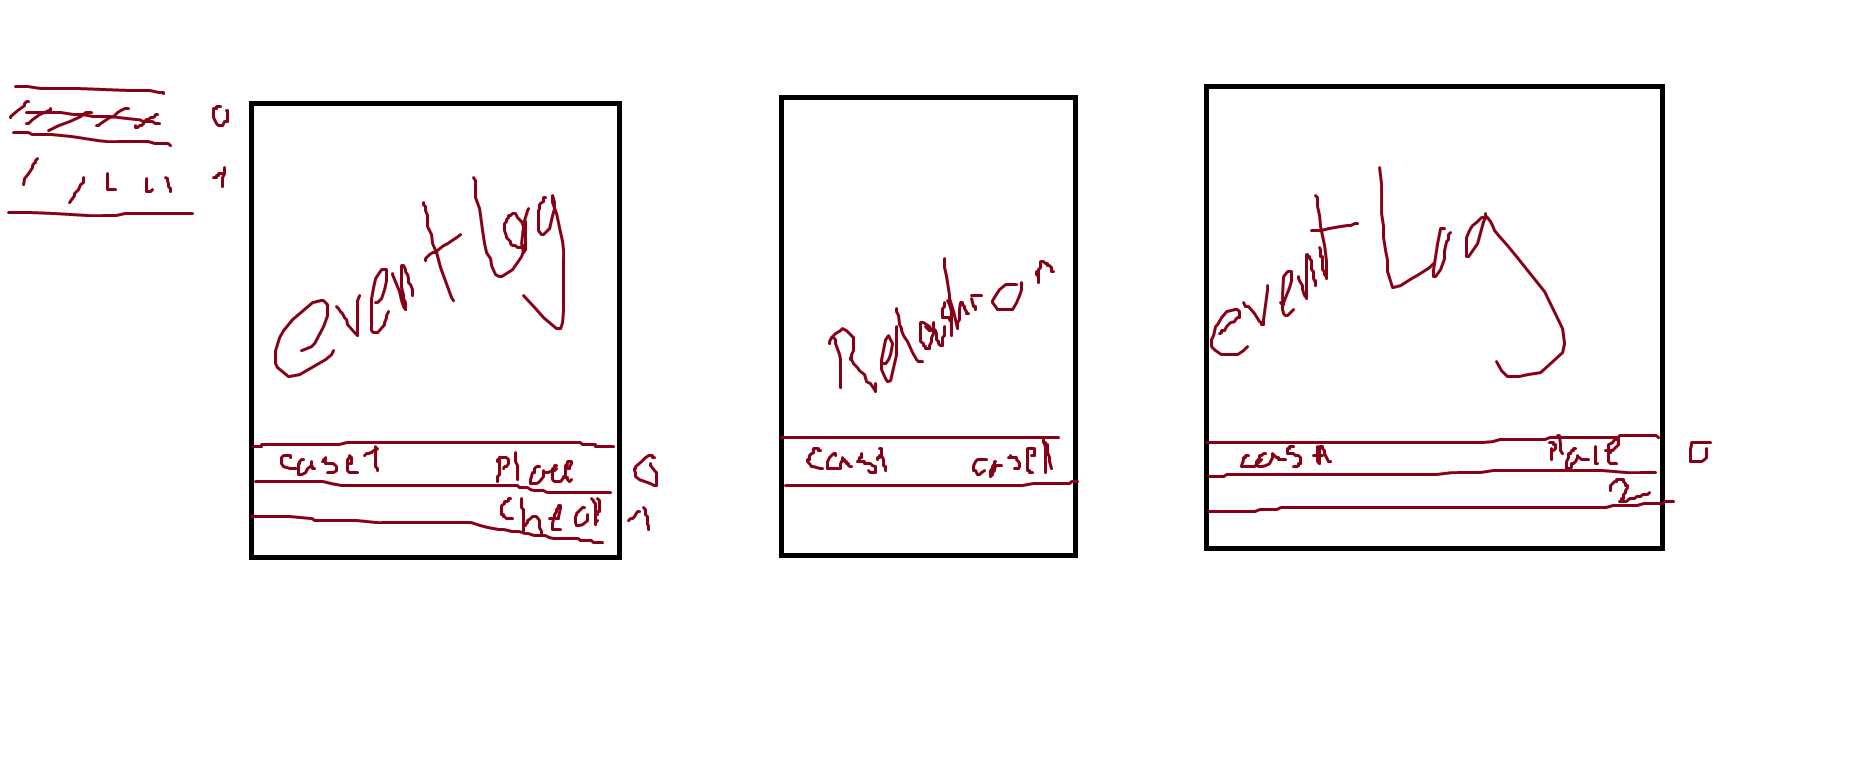 0
1
event Log
case1 Place 0
Check 1
Relation
cas1 caseA
event Log
casA Place 0
2